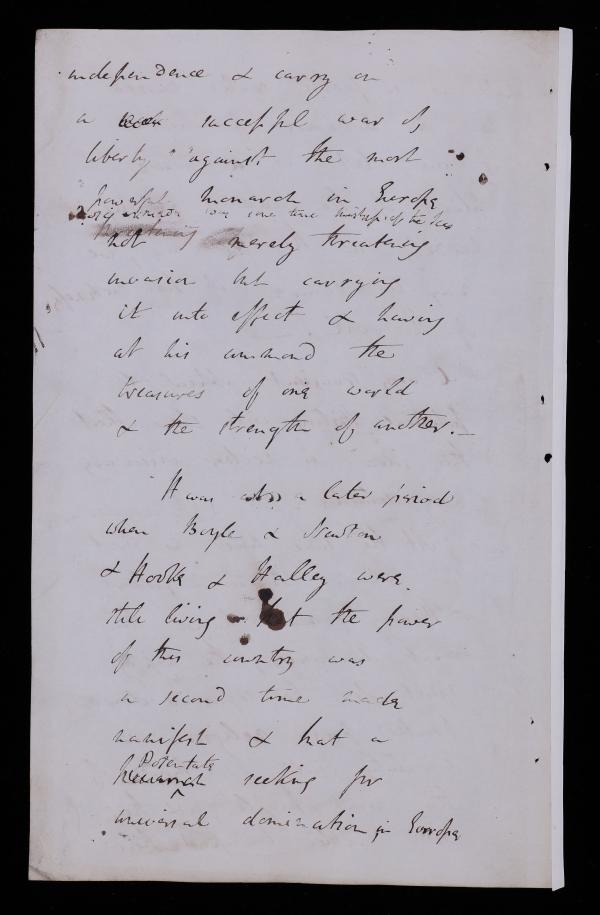 independence & carry on
a successful war of
liberty against the most
powerful monarch in Europe
at one time mistress of the sea
not merely threatening
invasion but carrying
it into effect & having
at his command the
treasures of one world
& the strength of another. —
It was a later period
when Boyle & Newton
& Hooke & Halley were
still living that the power
of this country was
a second time made
manifest & that a
Potentate
monarch seeking for
universal domination in Europe